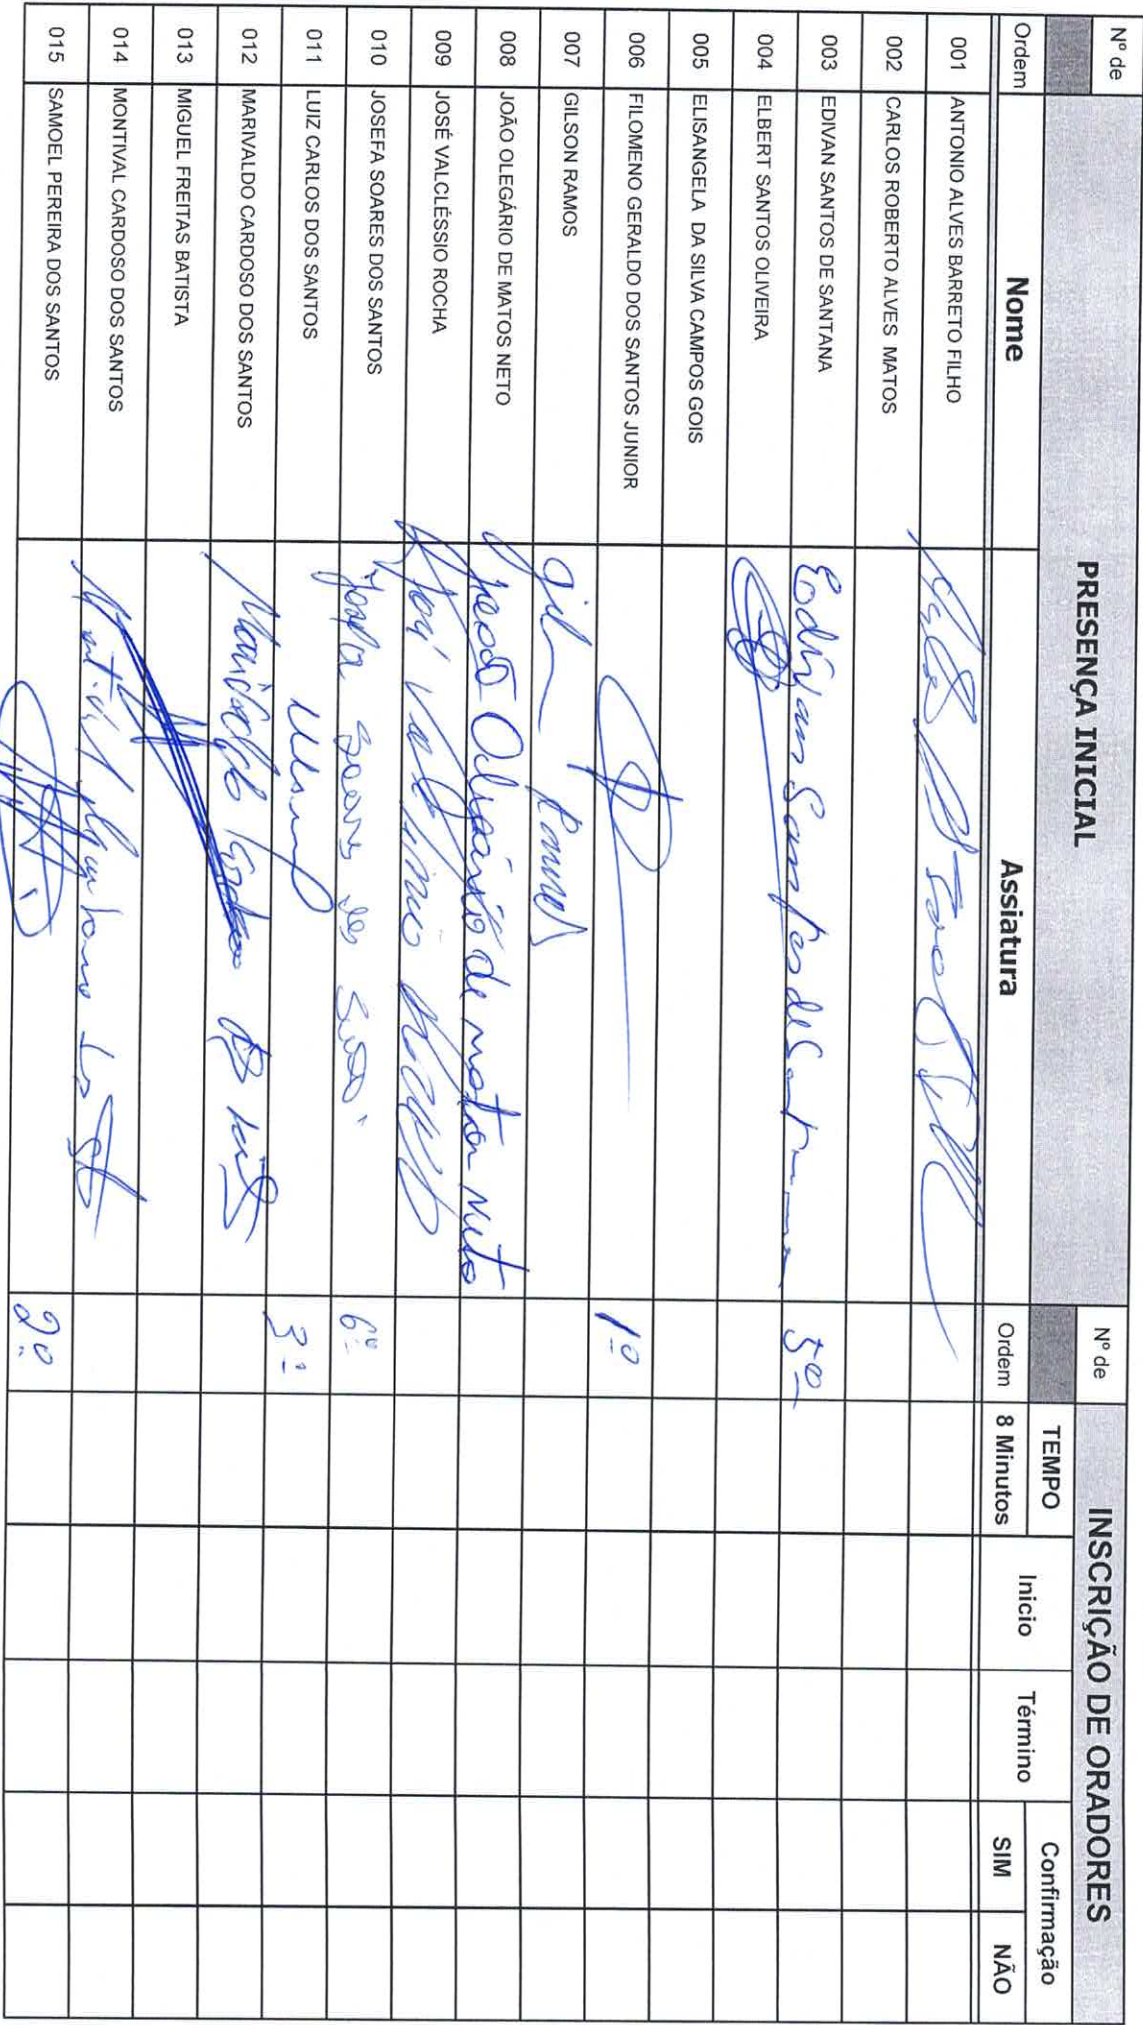 Nº de
PRESENÇA INICIAL
Nº de
INSCRIÇÃO DE ORADORES
Ordem
Nome
Assiatura
Ordem
TEMPO
8 Minutos
Inicio
Término
Confirmação
SIM
NÃO
001 ANTONIO ALVES BARRETO FILHO
002 CARLOS ROBERTO ALVES MATOS
003 EDIVAN SANTOS DE SANTANA Edivan Santos de Santana 5º
004 ELBERT SANTOS OLIVEIRA
005 ELISANGELA DA SILVA CAMPOS GOIS
006 FILOMENO GERALDO DOS SANTOS JUNIOR 1º
007 GILSON RAMOS
008 JOÃO OLEGÁRIO DE MATOS NETO João Olegário de matos Neto
009 JOSÉ VALCLÉSSIO ROCHA
010 JOSEFA SOARES DOS SANTOS Josefa Soares dos 6º
011 LUIZ CARLOS DOS SANTOS 3º
012 MARIVALDO CARDOSO DOS SANTOS Marivaldo
013 MIGUEL FREITAS BATISTA
014 MONTIVAL CARDOSO DOS SANTOS
015 SAMOEL PEREIRA DOS SANTOS 2º